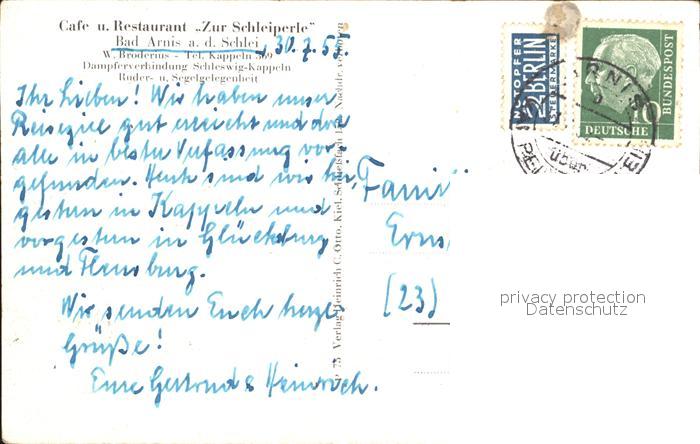 Cafe u. Restaurant „Zur Schleiperle"
Bad Arnis a. d. Schlei, 30.7.55
W. Broderius - Tel. Kappeln 369
Dampferverbindung Schleswig-Kappeln
Ruder- u. Segelgelegenheit
Ihr Lieben! Wir haben unser
Reiseziel gut erreicht und
alle in bester Verfassung vor-
gefunden. Heute sind wir hier,
gestern in Kappeln und
vorgestern in Glücksburg
und Flensburg.
Wir senden Euch herzl.
Grüße!
Eure Gertrud & Heinrich.
75 Verlag Heinrich C. Otto, Kiel
Nachdr. verboten
Fami
Erns
(23)
NOTOPFER
2 BERLIN
STEUERMARKE
10
DEUTSCHE
BUNDESPOST
ARNIS
über
privacy protection
Datenschutz